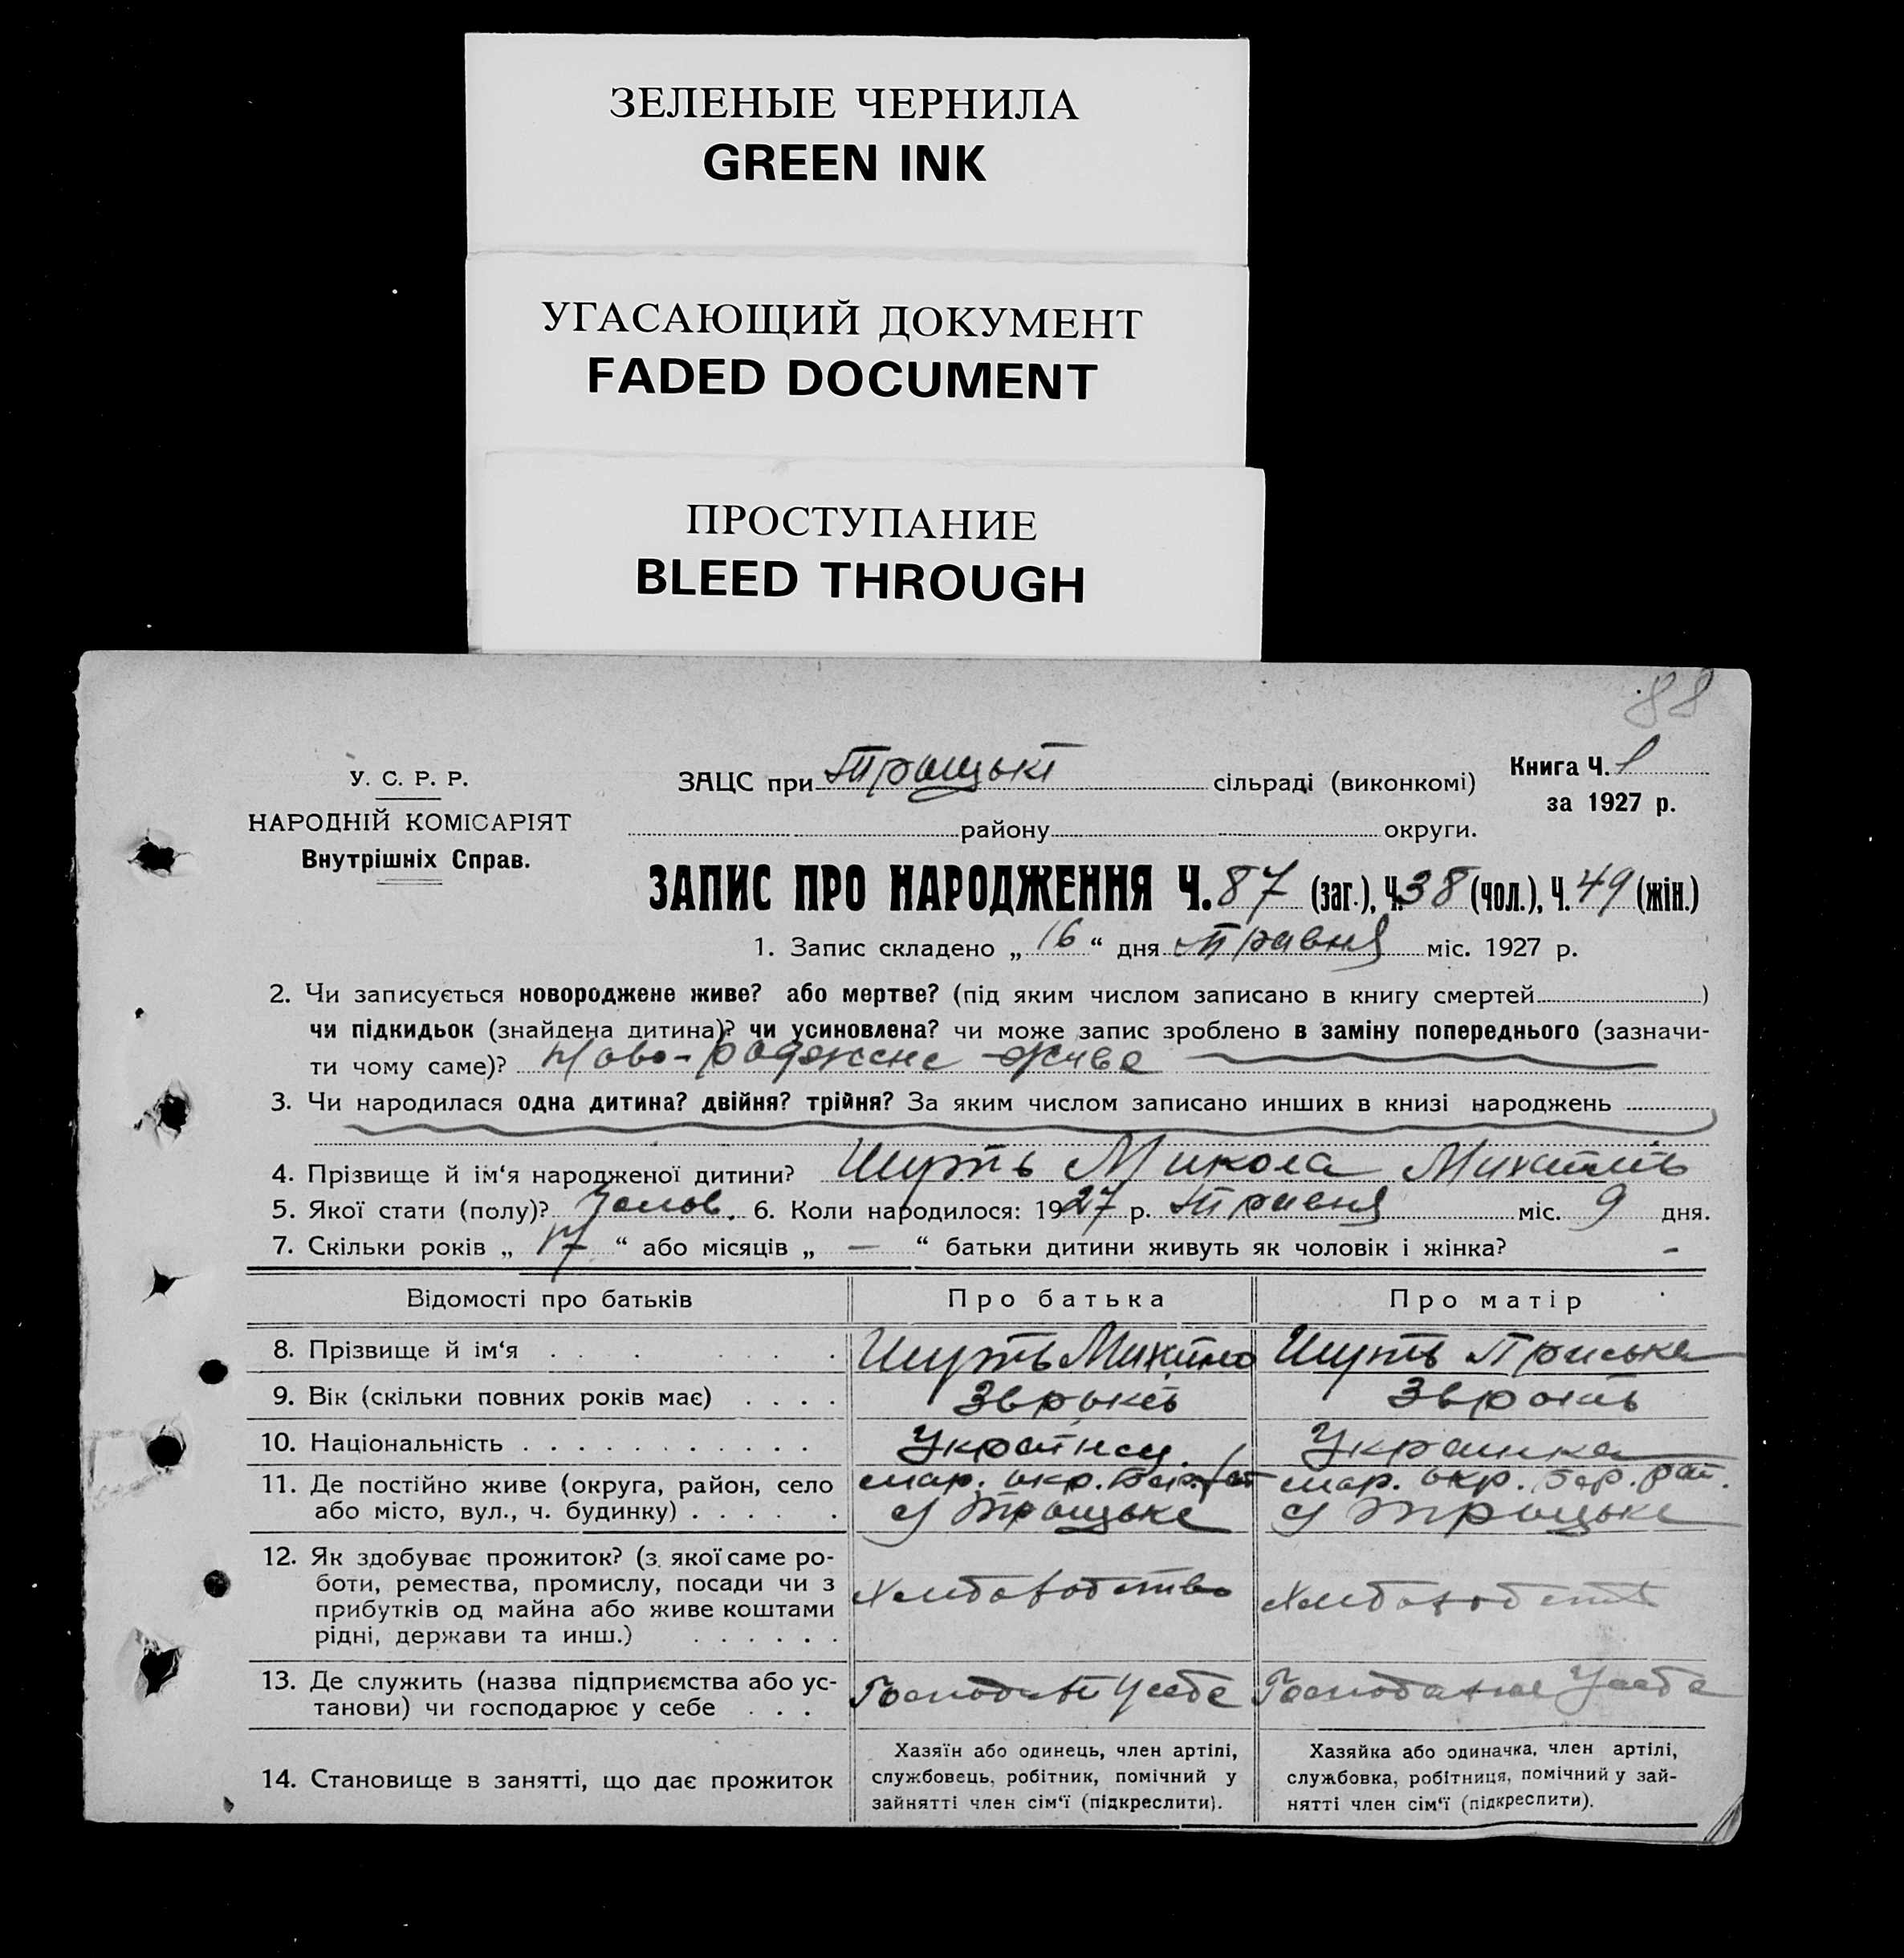 ЗЕЛЕНЫЕ ЧЕРНИЛА
GREEN INK
УГАСАЮЩИЙ ДОКУМЕНТ
FADED DOCUMENT
ПРОСТУПАНИЕ
BLEED THROUGH
88
У. С. Р. Р.
НАРОДНІЙ КОМІСАРІЯТ
Внутрішніх Справ.
ЗАЦС при Троцькі сільраді (виконкомі)
району округи.
Книга Ч. 1
за 1927 р.
ЗАПИС ПРО НАРОДЖЕННЯ Ч. 87 (заг.), Ч. 38 (чол.), Ч. 49 (жін.)
1. Запис складено „ 16 “ дня травня міс. 1927 р.
2. Чи записується новороджене живе? або мертве? (під яким числом записано в книгу смертей )
чи підкидьок (знайдена дитина)? чи усиновлена? чи може запис зроблено в заміну попереднього (зазначи-
ти чому саме)? Ново-роджене живе
3. Чи народилася одна дитина? двійня? трійня? За яким числом записано инших в книзі народжень
4. Прізвище й ім‘я народженої дитини? Шуть Микола
5. Якої стати (полу)? Чолов. 6. Коли народилося: 1927 р. травня міс. 9 дня.
7. Скільки років „ 17 “ або місяців „ — “ батьки дитини живуть як чоловік і жінка? -
Відомості про батьків Про батька Про матір
8. Прізвище й ім‘я . . . . . . . Шуть Шуть Приська
9. Вік (скільки повних років має) . . . .
10. Національність . . . . . . . . . . . . Українец. Украинка
11. Де постійно живе (округа, район, село мар. окр. мар. окр. рай.
або місто, вул., ч. будинку) . . . . . . с Троцьке с Троцьке
12. Як здобуває прожиток? (з якої саме ро-
боти, ремества, промислу, посади чи з
прибутків од майна або живе коштами
рідні, держави та инш.) . . . . . .
13. Де служить (назва підприємства або ус- Усебе Усебе
танови) чи господарює у себе . . .
14. Становище в занятті, що дає прожиток
Хазяїн або одинець, член артілі,
службовець, робітник, помічний у
зайнятті член сім‘ї (підкреслити).
Хазяйка або одиначка, член артілі,
службовка, робітниця, помічний у зай-
нятті член сім‘ї (підкреслити).